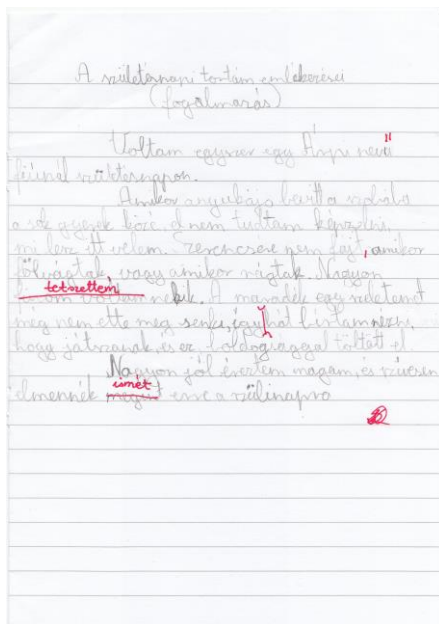 A születésnapi tortám emlékezései
(fogalmazás)
Voltam egyszer egy Árpi nevű
fiúnál születésnapon.
Amikor anyukája bevitt a szobába
a sok gyerek közé, el nem tudtam képzelni,
mi lesz itt velem. Szerencsére nem fájt, amikor
fölvágtak, vagy amikor rágtak. Nagyon
tetszettem
nekik. A maradék egy szeletemet
még nem ette meg senki, így hát bírtam nézni,
hogy játszanak, és ez boldogsággal töltött el.
Nagyon jól éreztem magam, és szívesen
ismét
elmennék megint erre a szülinapra